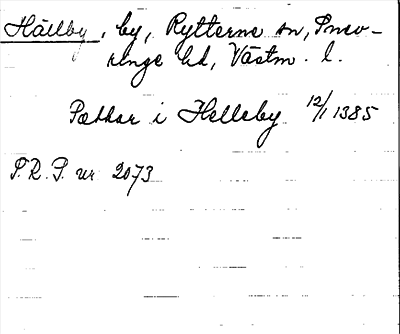 Hällby, by, Rytterne sn, Snev-
ringe hd, Västm. l.
Petkar i Helleby 12/1 1385
S.R.P. nr 2073